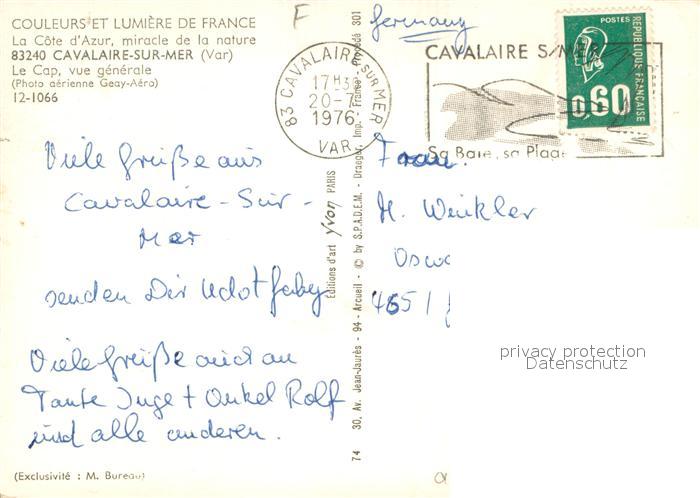 COULEURS ET LUMIÈRE DE FRANCE
La Côte d'Azur, miracle de la nature
83240 CAVALAIRE-SUR-MER (Var)
Le Cap, vue générale
(Photo aérienne Geay-Aéro)
12-1066
F
Germany
83 CAVALAIRE SUR MER
17H3
20-7
1976
VAR
CAVALAIRE S/MER
Sa Baie, sa Plage
POSTES
REPUBLIQUE FRANÇAISE
0,60
Viele Grüße aus
Cavalaire-Sur-
Mer
senden Dir Udo + Gaby
Viele Grüße auch an
Tante Inge + Onkel Rolf
und alle anderen.
(Exclusivité : M. Bureau)
74 30, Av. Jean-Jaurès - 94 - Arcueil - © by S.P.A.D.E.M. - Draeger, Imp. - France - Procédé 301
Editions d'art Yvon PARIS
Frau
M. Winkler
465 /
privacy protection
Datenschutz